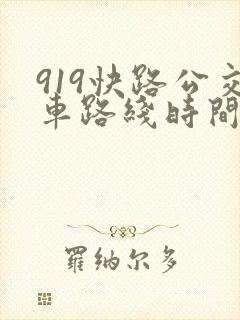 919快路公交
車路綫時間
羅纳尔多